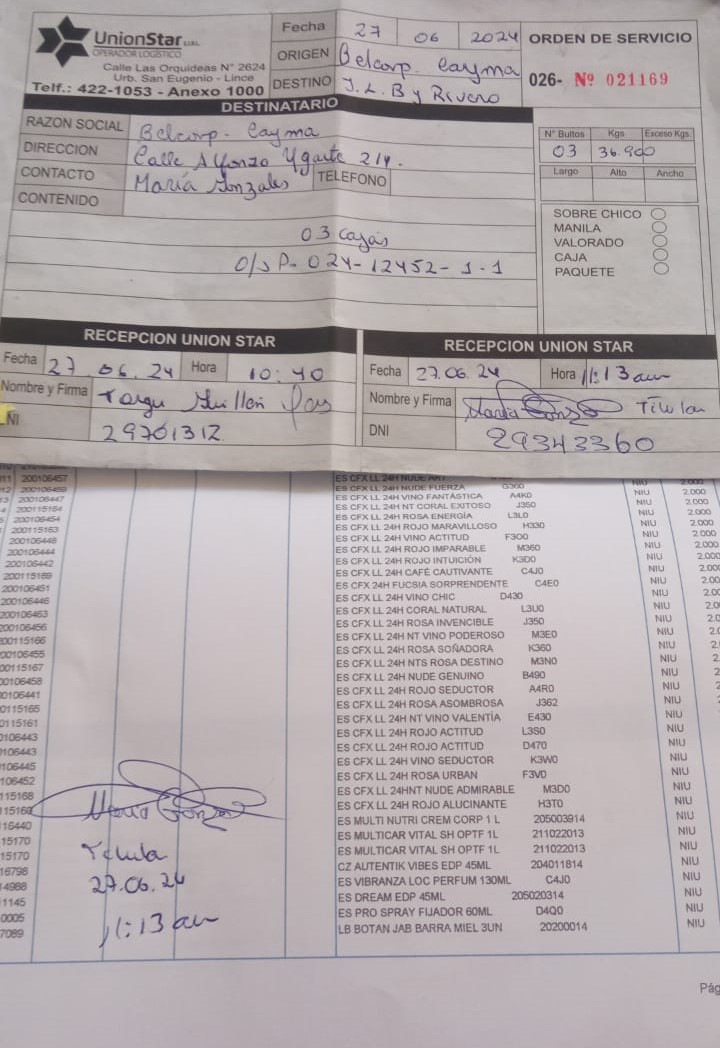 UnionStar S.R.L.
OPERADOR LOGÍSTICO
Calle Las Orquideas N° 2624
Urb. San Eugenio - Lince
Telf.: 422-1053 - Anexo 1000
Fecha 27 06 2024
ORIGEN Belcorp. Cayma
DESTINO J. L. B y Rivero
ORDEN DE SERVICIO
026- Nº 021169
DESTINATARIO
RAZON SOCIAL Belcorp - Cayma
DIRECCION Calle Alfonzo Ygarte 214.
CONTACTO María Gonzales TELEFONO
CONTENIDO
03 cajas
O/S P- 024-12452-1-1
N° Bultos Kgs. Exceso Kgs.
03 36.900
Largo Alto Ancho
SOBRE CHICO
MANILA
VALORADO
CAJA
PAQUETE
RECEPCION UNION STAR
Fecha 27.06.24 Hora 10:40
Nombre y Firma Guillen
DNI 29701312
RECEPCION UNION STAR
Fecha 27.06.24 Hora 11:13 am
Nombre y Firma María Gonzo Titular
DNI 29343360
200106457 ES CFX LL 24H NUDE
ES CFX LL 24H NUDE FUERZA G360 NIU 2.000
200106447 ES CFX LL 24H VINO FANTÁSTICA A4K0 NIU 2.000
200115164 ES CFX LL 24H NT CORAL EXITOSO J350 NIU 2.000
200106454 ES CFX LL 24H ROSA ENERGÍA L3L0 NIU 2.000
200115163 ES CFX LL 24H ROJO MARAVILLOSO H330 NIU 2.000
200106448 ES CFX LL 24H VINO ACTITUD F300 NIU 2.000
200106444 ES CFX LL 24H ROJO IMPARABLE M360 NIU 2.000
200106442 ES CFX LL 24H ROJO INTUICIÓN K3D0 NIU 2.000
200115169 ES CFX LL 24H CAFÉ CAUTIVANTE C4J0 NIU
200106451 ES CFX 24H FUCSIA SORPRENDENTE C4E0 NIU
200106446 ES CFX LL 24H VINO CHIC D430 NIU
200106463 ES CFX LL 24H CORAL NATURAL L3U0 NIU
200106456 ES CFX LL 24H ROSA INVENCIBLE J350 NIU
00115166 ES CFX LL 24H NT VINO PODEROSO M3E0 NIU
00106455 ES CFX LL 24H ROSA SOÑADORA K360 NIU
00115167 ES CFX LL 24H NTS ROSA DESTINO M3N0 NIU
00106458 ES CFX LL 24H NUDE GENUINO B490 NIU
0106441 ES CFX LL 24H ROJO SEDUCTOR A4R0 NIU
0115165 ES CFX LL 24H ROSA ASOMBROSA J362 NIU
0115161 ES CFX LL 24H NT VINO VALENTÍA E430 NIU
0106443 ES CFX LL 24H ROJO ACTITUD L3S0 NIU
0106443 ES CFX LL 24H ROJO ACTITUD D470 NIU
106445 ES CFX LL 24H VINO SEDUCTOR K3W0 NIU
106452 ES CFX LL 24H ROSA URBAN F3V0 NIU
115168 ES CFX LL 24HNT NUDE ADMIRABLE M3D0 NIU
115160 ES CFX LL 24H ROJO ALUCINANTE H3T0 NIU
16440 ES MULTI NUTRI CREM CORP 1 L 205003914 NIU
15170 ES MULTICAR VITAL SH OPTF 1L 211022013 NIU
15170 ES MULTICAR VITAL SH OPTF 1L 211022013 NIU
16798 CZ AUTENTIK VIBES EDP 45ML 204011814 NIU
14988 ES VIBRANZA LOC PERFUM 130ML C4J0 NIU
1145 ES DREAM EDP 45ML 205020314 NIU
0005 ES PRO SPRAY FIJADOR 60ML D4Q0 NIU
7089 LB BOTAN JAB BARRA MIEL 3UN 20200014 NIU
María Gonzo
27.06.24
11:13 am
Pág